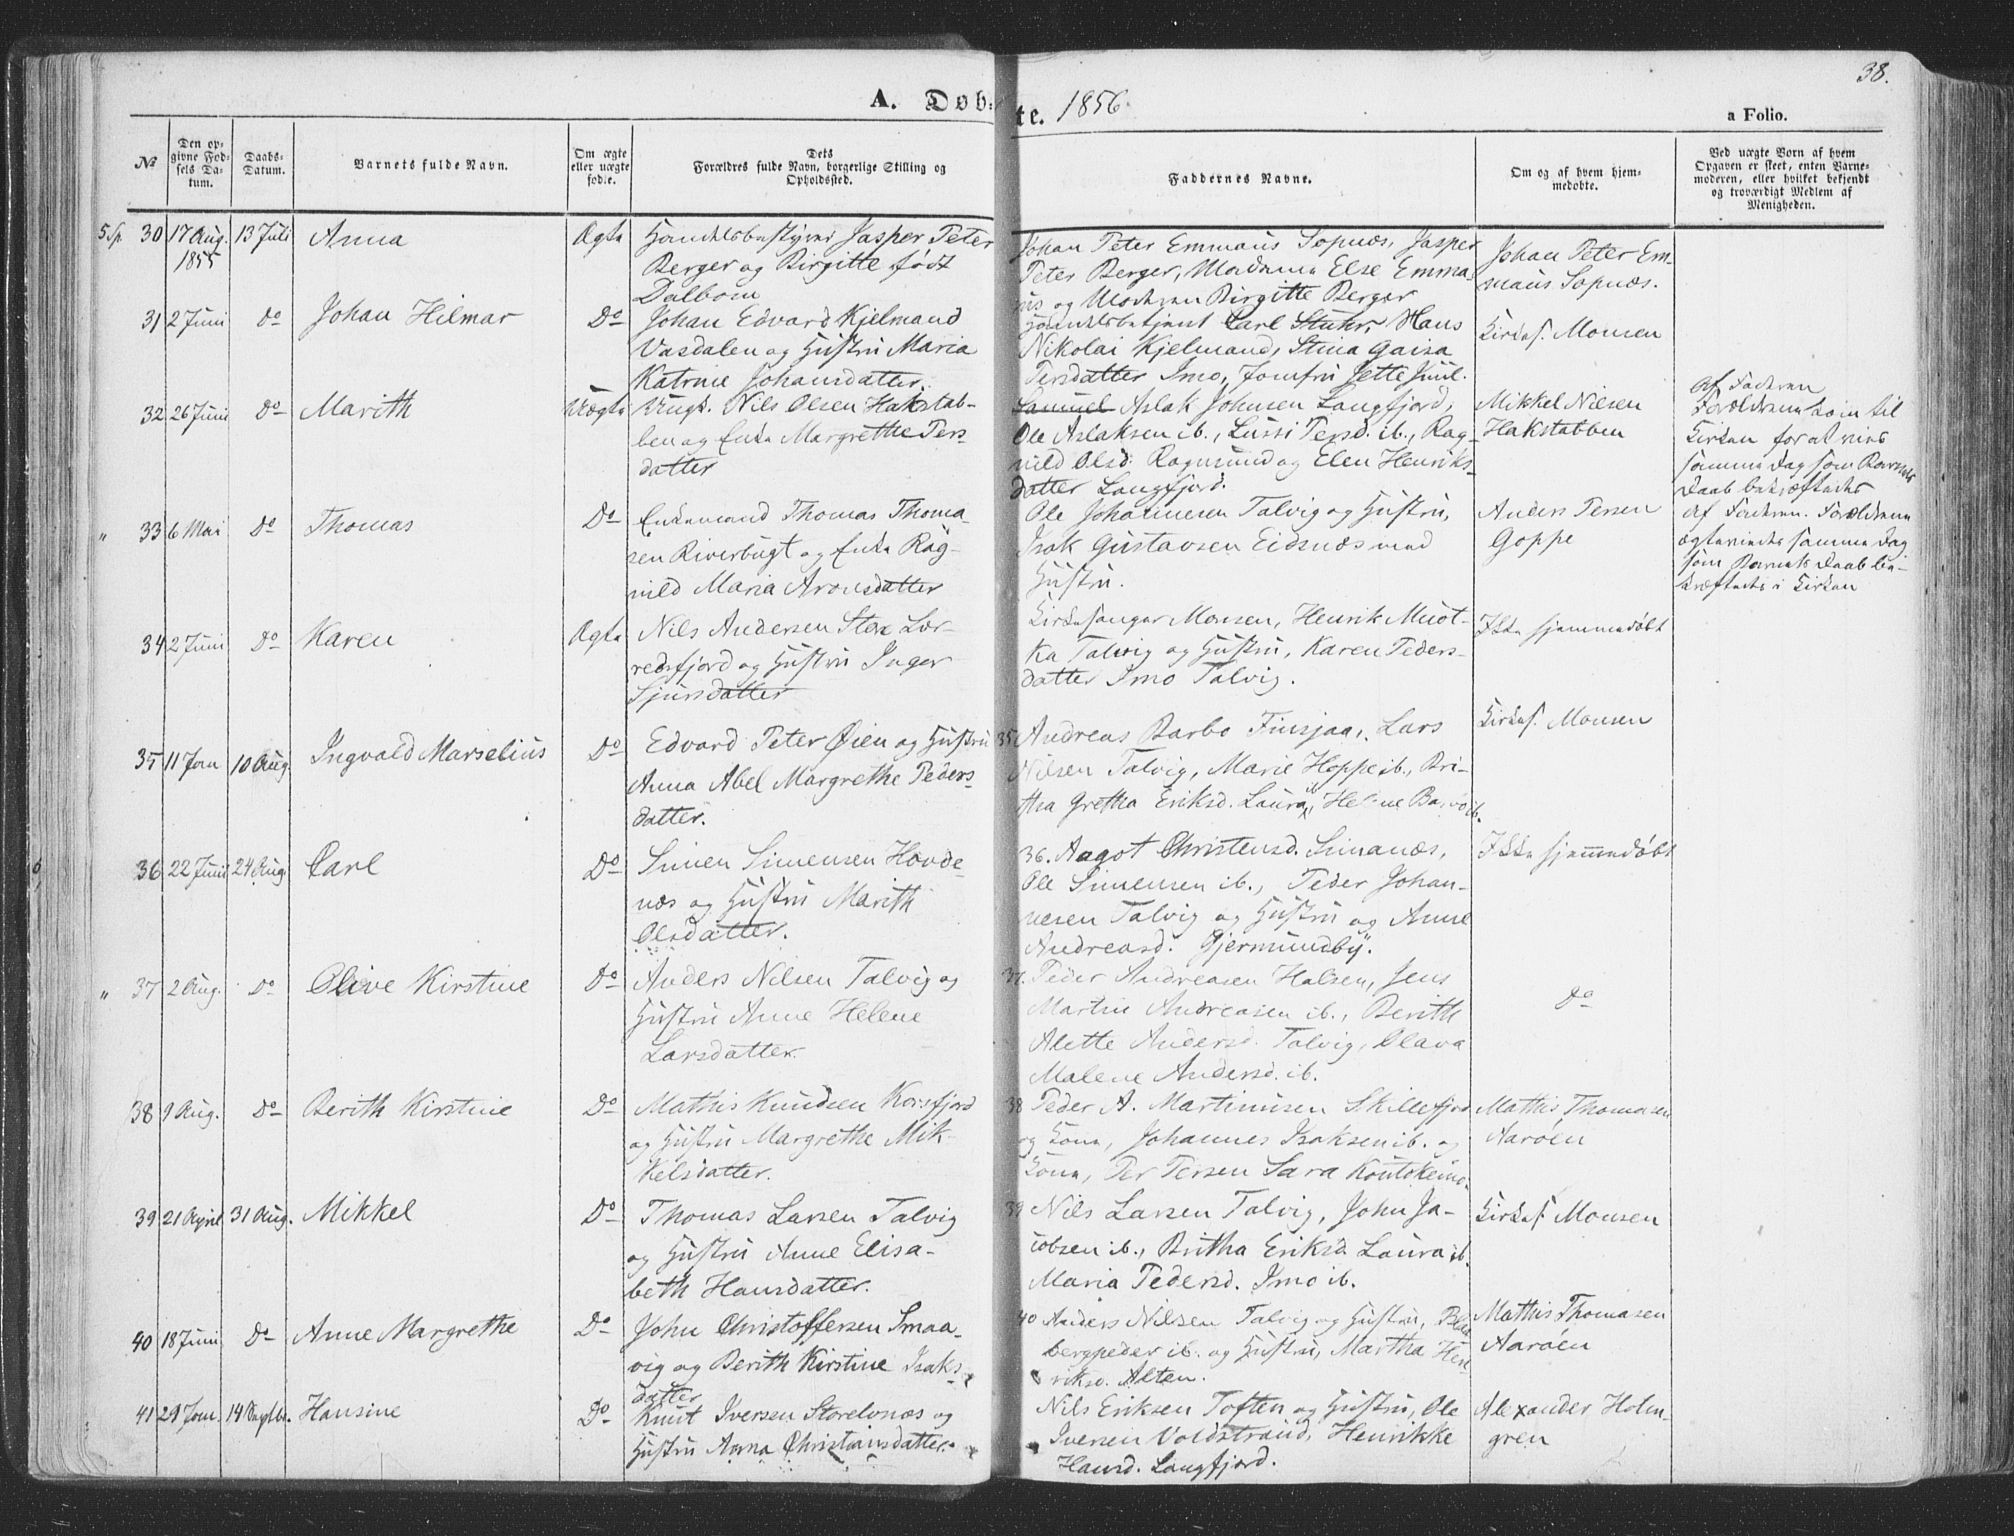 38.
A. Døb-
te. 1856.
a Folio.
№
Den op-
givne Fød-
sels Da-
tum.
Daabs-
Datum.
Barnets fulde Navn.
Om ægte
eller uægte
fødte.
Dets
Forældres fulde Navn, borgerlige Stilling og
Opholdssted.
Faddernes Navne.
Om og af hvem hjem-
medøbte.
Ved uægte Børn af hvem
Opgaven er skeet, enten Barne-
moderen, eller hvilket bekjendt
og troværdigt Medlem af
Menigheden.
5 Sp. 30 17 Aug. 1855 13 Juli Anna Ægte
Handelsbestyrer Jasper Peter
Berger og Birgitte født
Dalbom
Johan Peter Emmaus Sopnæs, Jasper
Peter Berger, Madame Else Emma-
us og Moderen Birgitte Berger
Johan Peter Em-
maus Sopnæs.
31 2 Juni Do Johan Hilmar Do
Johan Edvard Kjelmand
Vasdalen og Hustru Maria
Katrine Johansdatter.
Handelsbetjent Carl Stuhr, Hans
Nikolai Kjelmand, Stina Gaisa
Persdatter Imo, Jomfru Jette Juul.
Kirkes. Monsen
32 26 Juni Do Marith Uægte
Ungk. Nils Olsen Hakstab-
ben og Enke Margrethe Pers-
datter
Samuel Aslak Johnsen Langfjord,
Ole Aslaksen ib., Lussi Persd. ib., Rag-
nild Olsd. Ragnsund og Elen Henriks-
datter Langfjord.
Mikkel Nilsen
Hakstabben
Af Faderen
Forældrene kom til
Kirken for at vies
samme Dag som Barnets
Daab bekræftedes
" 33 6 Mai Do Thomas Do
Enkemand Thomas Thoma-
sen Riverbugt og Enke Rag-
nild Maria Aronsdatter
Ole Johannesen Talvig og Hustru,
Isak Gustavsen Eidsnæs med
Hustru.
Anders Persen
Goppe
Af Faderen. Forældrene
ægteviedes samme Dag
som Barnets Daab be-
kræftedes i Kirken
34 2 Juni Do Karen Ægte
Nils Andersen Store Lær-
redsfjord og Hustru Inger
Sjursdatter
Kirkesanger Monsen, Henrik Muot-
ka Talvig og Hustru, Karen Peders-
datter Imo Talvig.
Ikke hjemmedøbt
35 11 Jan 10 Aug. Ingvald Marselius Do
Edvard Peter Øien og Hustru
Anna Abel Margrethe Peders-
datter.
35 Andreas Barbo Finsjaa, Lars
Nilsen Talvig, Marie Hoppe ib., Bri-
tha Gretha Eriksd. Laura ib, Helene Barbo ib.
Kirkes. Monsen
36 22 Juni 24 Aug. Carl Do
Simen Simensen Hovde-
næs og Hustru Marith
Olsdatter.
36. Aagot Christensd. Simanæs,
Ole Simensen ib., Peder Johan-
nesen Talvig og Hustru og Anne
Andreasd. Gjermundby.
Ikke hjemmedøbt
" 37 2 Aug. Do Olive Kirstine Do
Anders Nilsen Talvig og
Hustru Anne Helene
Larsdatter.
37. Peder Andreasen Halsen, Jens
Martin Andreasen ib., Berith
Alette Andersd. Talvig, Olava
Malene Andersd. ib.
Do
38 9 Aug. Do Berith Kirstine Do
Mathis Knudsen Korsfjord
og Hustru Margrethe Mik-
kelsdatter.
38 Peder A. Martinusen Skillefjord
og Kone, Johannes Isaksen ib. og
Kone, Per Persen Sara Koutokeino.
Mathis Thomasen
Aarøen
39 21 April 31 Aug. Mikkel Do
Thomas Larsen Talvig
og Hustru Anne Elisa-
beth Hansdatter.
39 Nils Larsen Talvig, John Ja-
cobsen ib., Britha Eriksd. Laura ib.
Maria Pedersd. Imo ib.
Kirkes. Monsen
40 18 Juni Do Anne Margrethe Do
John Christoffersen Smaa-
vig og Berith Kirstine Isaks-
datter
40 Anders Nilsen Talvig og Hustru,
bergpeder ib. og Hustru, Martha Hen-
riksd. Alten.
Mathis Thomasen
Aarøen
41 29 Jan. 14 Septbr. Hansine Do
Knut Iversen Storelvnæs og
Hustru Anna Christiansdatter.
Nils Eriksen Toften og Hustru, Ole
Iversen Voldstrand, Henrikke
Hansd. Langfjord.
Alexander Holm-
gren